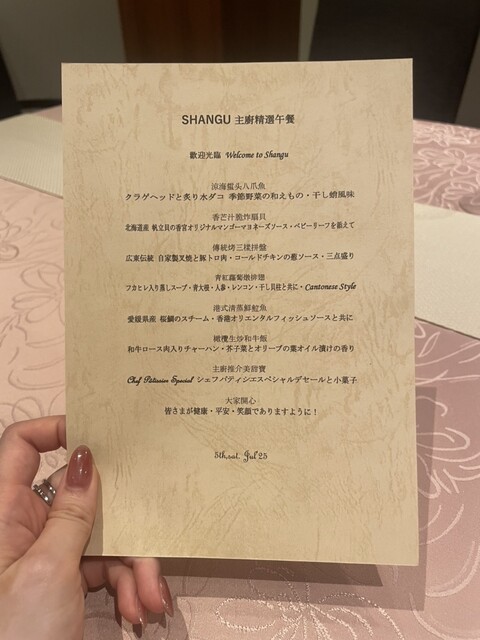 SHANGU 主廚精選午餐
歡迎光臨 Welcome to Shangu
涼海蜇头八爪魚
クラゲヘッドと炙り水ダコ 季節野菜の和えもの・干し蛸風味
香芒汁脆炸扇貝
北海道産 帆立貝の香宮オリジナルマンゴーマヨネーズソース・ベビーリーフを添えて
傳統烤三樣拼盤
広東伝統 自家製叉焼と豚トロ肉・コールドチキンの葱ソース・三点盛り
青紅蘿蔔燉排翅
フカヒレ入り蒸しスープ・青大根・人参・レンコン・干し貝柱と共に・Cantonese Style
港式清蒸鮮鯛魚
愛媛県産 桜鯛のスチーム・香港オリエンタルフィッシュソースと共に
橄欖生炒和牛飯
和牛ロース肉入りチャーハン・芥子菜とオリーブの葉オイル漬けの香り
主廚推介美甜寶
Chef Pâtissier Special シェフパティシエスペシャルデセールと小菓子
大家開心
皆さまが健康・平安・笑顔でありますように!
5th,sat, Jul'25